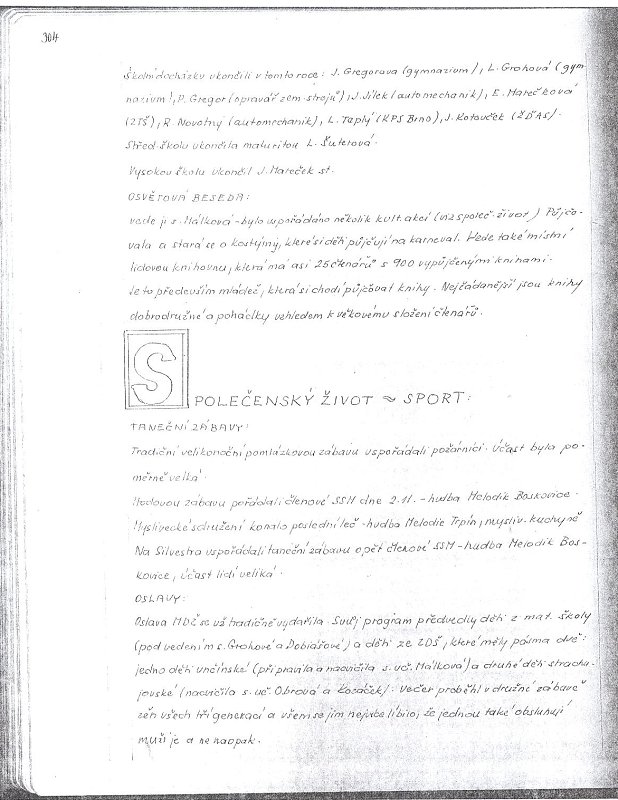 304
Školní docházku ukončili v tomto roce: J. Gregorova (gymnazium), L. Grohová (gym-
nazium), P. Gregor (opravář zem. strojů), J. Jílek (automechanik), E. Marečková
(ZTŠ), R. Novotný (automechanik), L. Teplý (KPS Brno), J. Kotouček (ŽĎAS).
Střed. školu ukončila maturitou L. Šuterová.
Vysokou školu ukončil J. Mareček st.
OSVĚTOVÁ BESEDA:
vede ji s. Málková - bylo uspořádáno několik kult. akcí (viz společ. život) Půjčo-
vala a stará se o kostýmy, které si děti půjčují na karneval. Vede také místní
lidovou knihovnu, která má asi 25 čtenářů s 900 vypůjčenými knihami.
Je to především mládež, která si chodí půjčovat knihy. Nejžádanější jsou knihy
dobrodružné a pohádky vzhledem k věkovému složení čtenářů.
SPOLEČENSKÝ ŽIVOT ~ SPORT:
TANEČNÍ ZÁBAVY:
Tradiční velikonoční pomlázkovou zábavu uspořádali požárníci. Účast byla po-
měrně velká.
Hodovou zábavu pořádali členové SSM dne 2.11. - hudba Melodik Boskovice.
Myslivecké sdružení konalo poslední leč - hudba Melodie Trpín, mysliv. kuchyně
Na Silvestra uspořádali taneční zábavu opět členové SSM - hudba Melodik Bos-
kovice, účast lidí veliká.
OSLAVY:
Oslava MDŽ se už tradičně vydařila. Svůj program předvedly děti z mat. školy
(pod vedením s. Grohové a Dobiášové) a děti ze ZDŠ, které měly pásma dvě:
jedno děti unčínské (připravila a nacvičila s. uč. Málková) a druhé děti stracho-
jovské (nacvičila s. uč. Obrová a Kozáček). Večer proběhl v družné zábavě
žen všech tří generací a všem se jim nejvíce líbilo, že jednou také obsluhují
muži je a ne naopak.